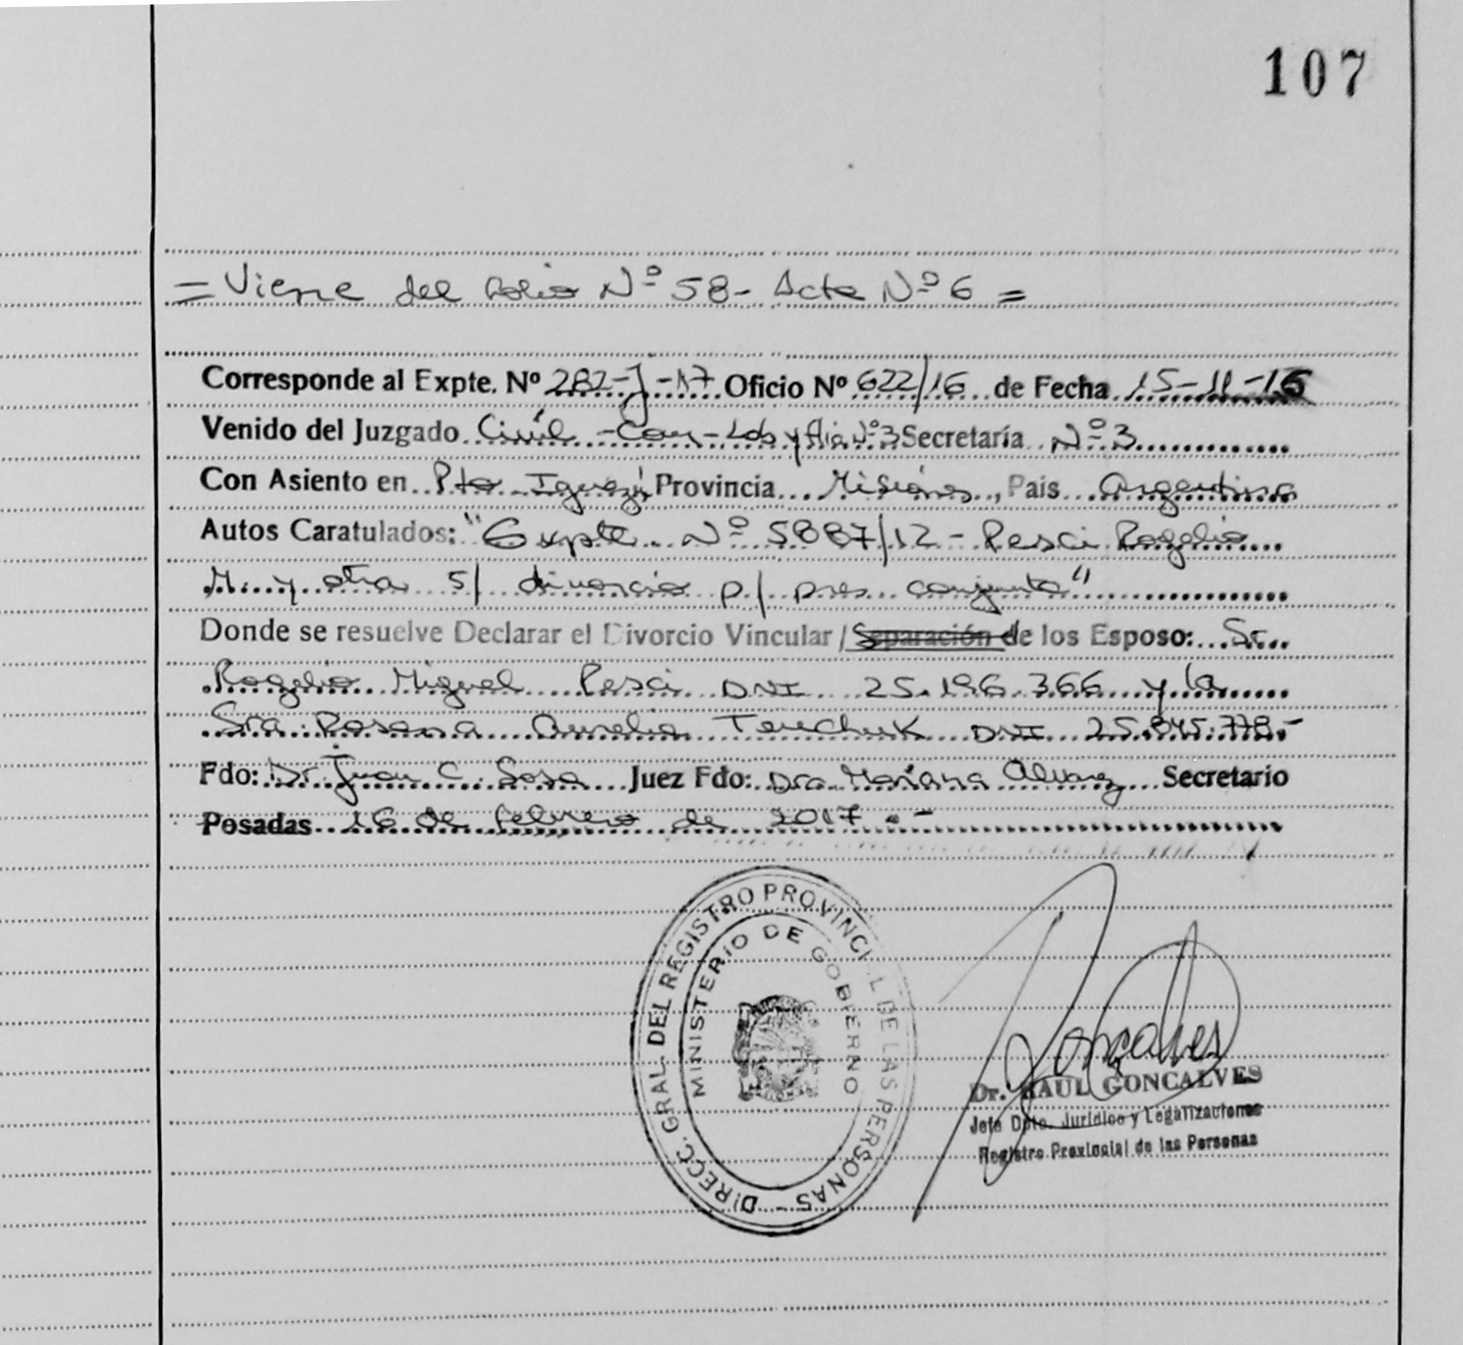 107
= Viene del folio Nº 58 - Acta Nº 6 =
Corresponde al Expte. Nº 282-J-17 Oficio Nº 622/16 de Fecha 15-11-16
Venido del Juzgado Civil - Com - Lab y flia Nº 3 Secretaría Nº 3
Con Asiento en Pto Iguazú Provincia Misiones, País Argentina
Autos Caratulados: "Expte Nº 5887/12 - Pesci Rogelio
M. y otra s/ divorcio p/ pres conjunta"
Donde se resuelve Declarar el Divorcio Vincular / Separación de los Esposo: Sr.
Rogelio Miguel Pesci DNI 25.196.366 y la
Sra. Rosana Aurelia Teuchuk DNI 25.845.778.-
Fdo: Dr Juan C. Sosa Juez Fdo: Dra Mariana Alvarez Secretario
Posadas 16 de febrero de 2017.-
DIRECC. GRAL. DEL REGISTRO PROVINCIAL DE LAS PERSONAS
MINISTERIO DE GOBIERNO
Goncalves
Dr. RAUL GONCALVES
Jefe Dpto. Jurídico y Legalizaciones
Registro Provincial de las Personas